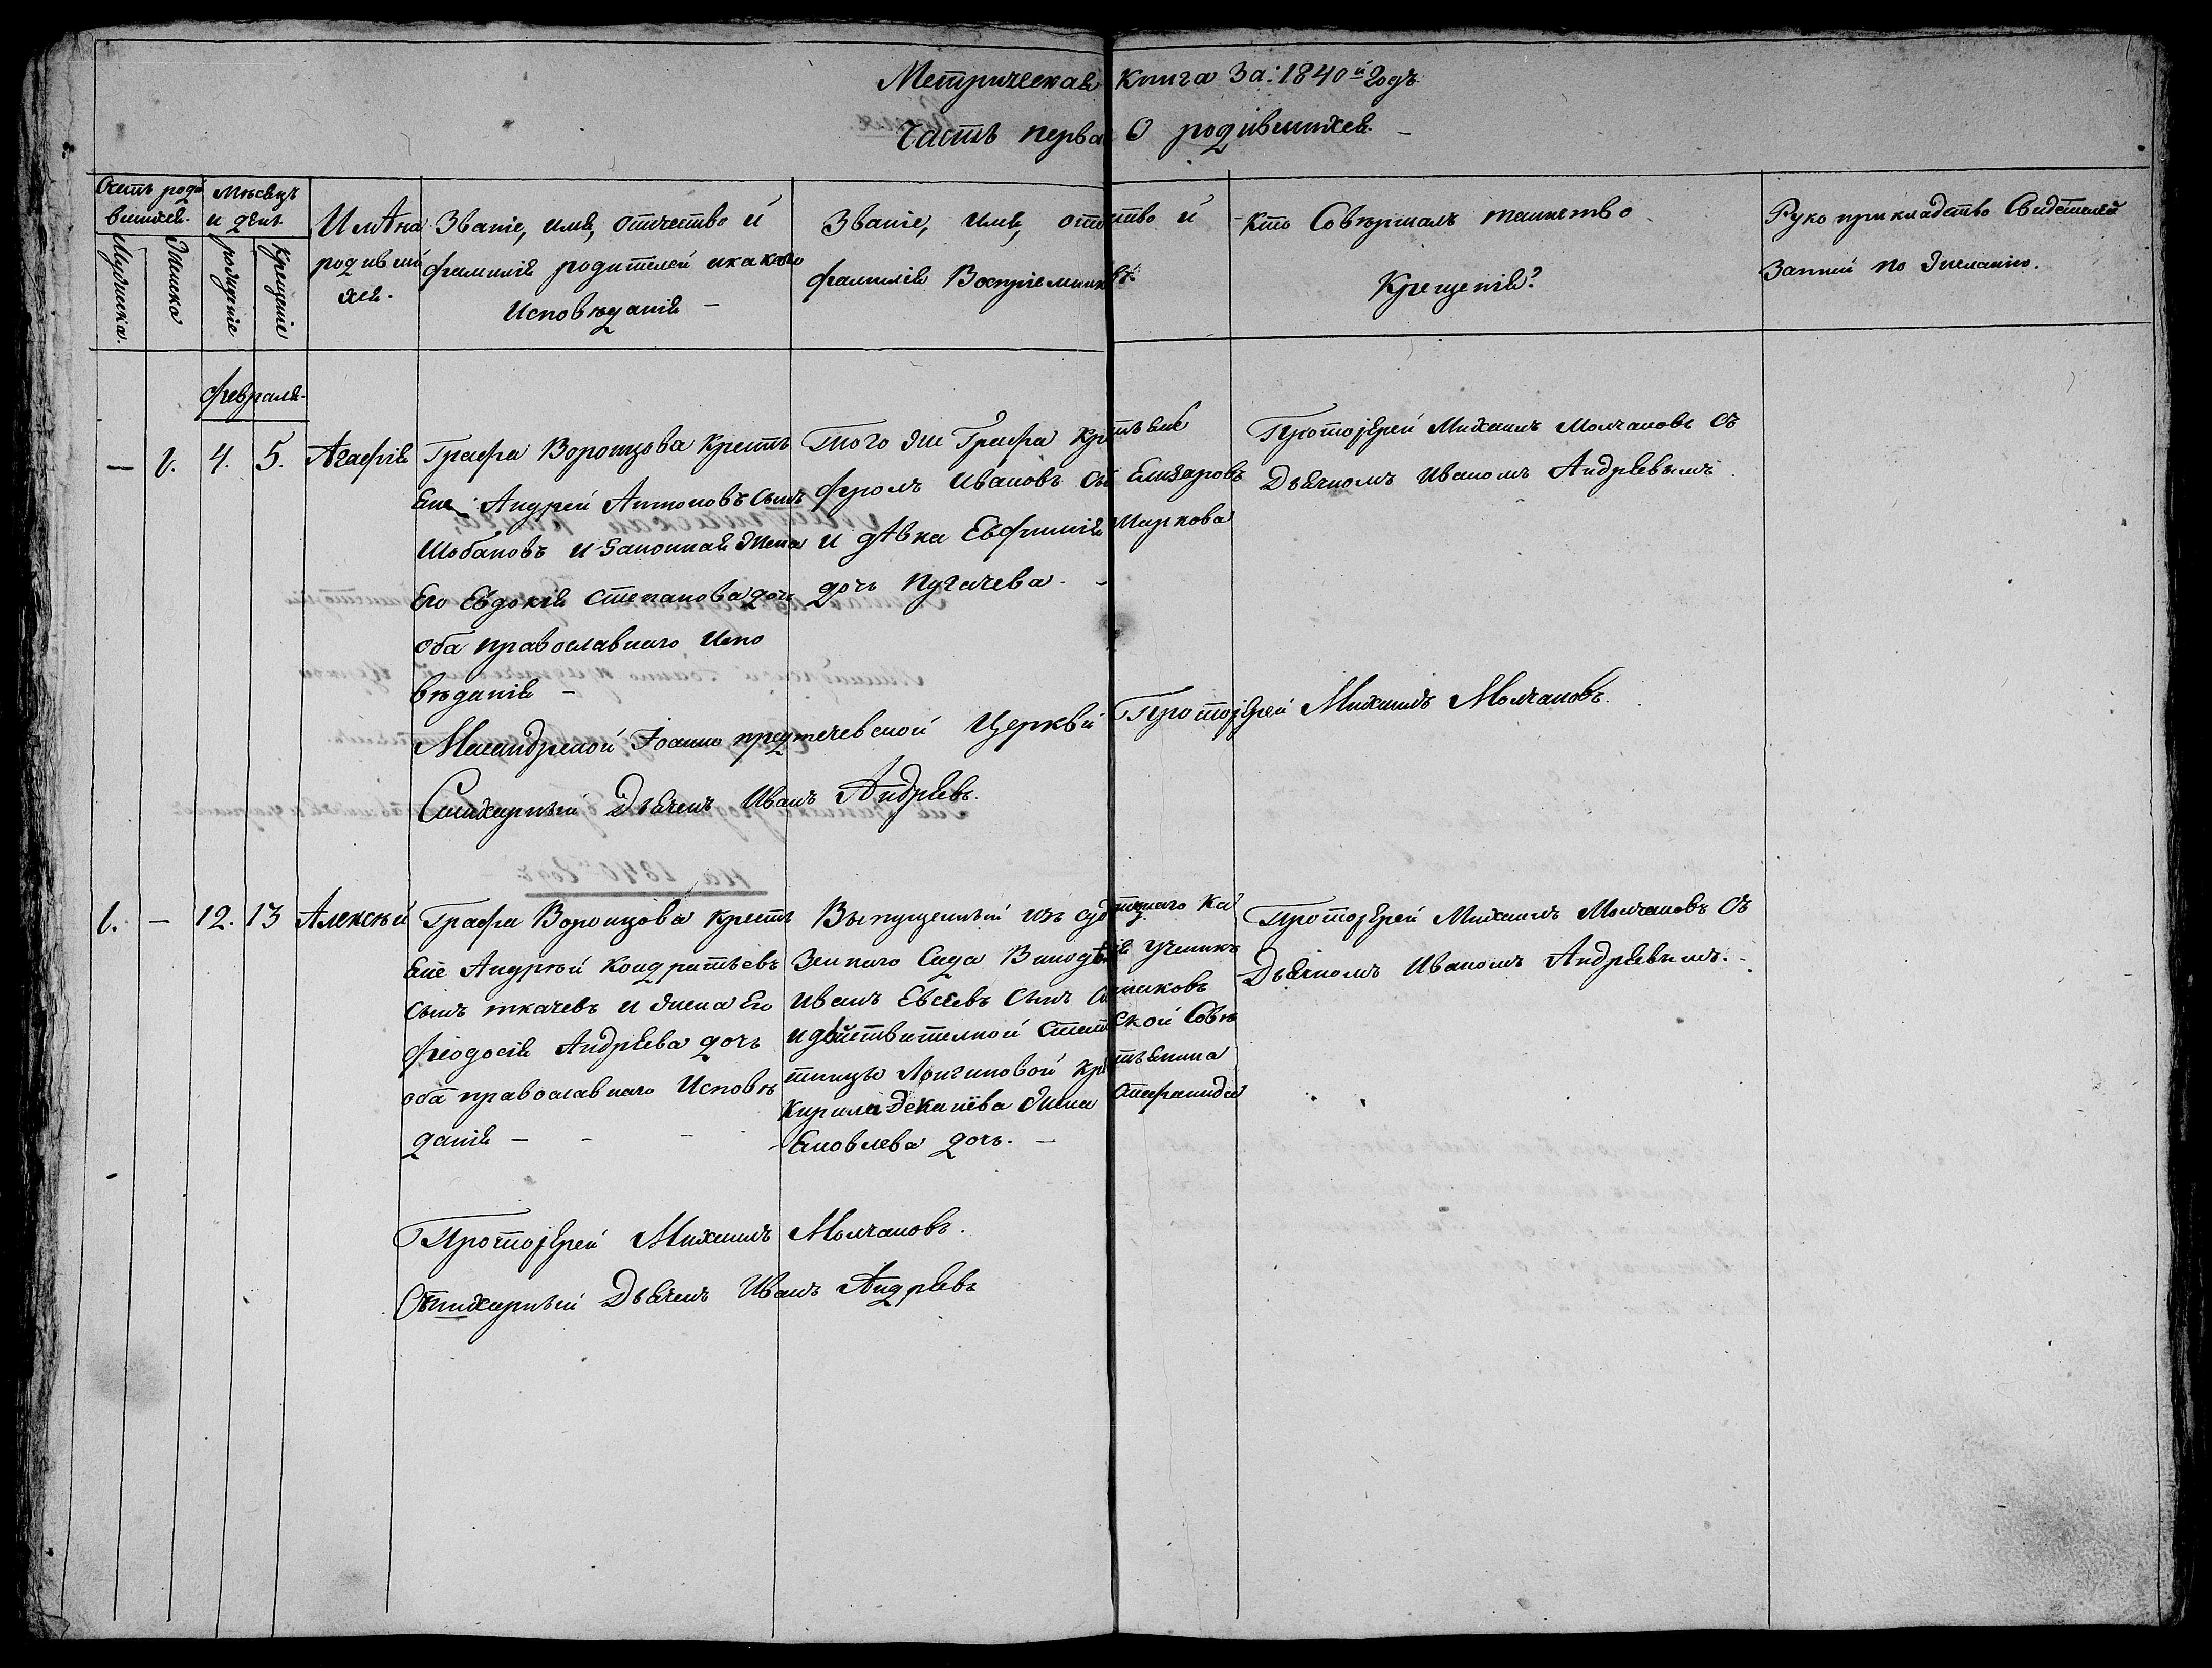 Метрическая Книга За: 1840й Годъ.
Часть перва О родившихся. –
Счетъ роди
вшихся.
Мужеска.
Женска
Мѣсяцъ
и день
рождение
Крещение
Имѧна
родивши
хся.
Званіе, имя, отчество й
фамилія родителей икакого
Исповѣданія –
Званіе, имя, отчество й
фамилія Воспріемник
Кто Совершалъ таинство
Крещенія?
Рукоприкладство Свидетелей
Записи по желанію.
февраля
– 1. 4. 5. Агафія
Графа Воронцова Крестъ
яне Андрей Антоновъ сынъ
Шобановъ и Законная жена
Его Евдокія Степанова дочь
оба православнаго Испо
вѣданія –
Того же Графа Крестьяне
фролъ Ивановъ Елизаровъ
и дѣвка Евфимія Маркова
дочь Пугачева. –
Протоіерей Михаилъ Молчановъ съ
Дьячкомъ Иваномъ Андрѣевымъ
Масандрской Іоанно предтечевской Церкви Протоіерей Михаилъ Молчановъ.
Стихарный Дьячекъ Иванъ Андрѣевъ.
1. – 12. 13 Алексѣй
Графа Воронцова крестъ
яне Андрѣй Кондратьевъ
сынъ ткачевъ и жена Его
феодосія Андрѣева дочь
оба православнаго Исповѣ
данія – – –
Выпущенный изъ Ка
зеннаго Сада Винодѣлія Ученикъ
Иванъ Евсѣевъ сынъ
и действителной Статской Совѣ
тницы Лонгиновой крестьянина
Кирила Деканёва жена Стефанида
Яковлева дочь. –
Протоіерей Михаилъ Молчановъ съ
Дьячкомъ Иваномъ Андрѣевымъ. –
Протоіерей Михаилъ Молчановъ.
Стихарный Дьячекъ Иванъ Андрѣевъ